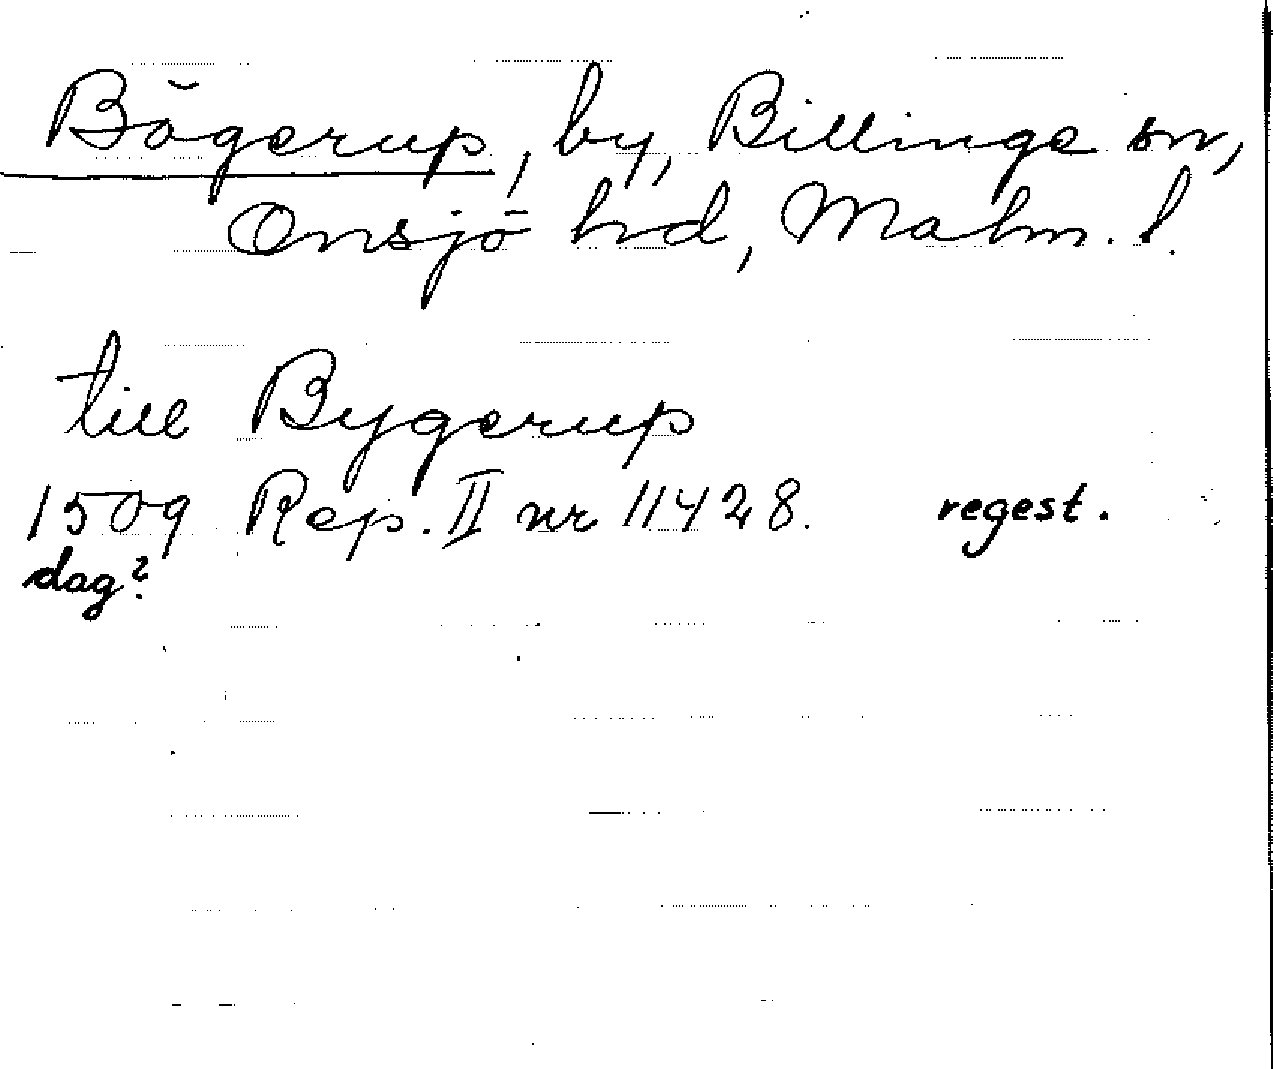 Bögerup, by, Billinge sn,
Onsjö hrd, Malm. l.
till Bygerup
1509 Rep. II nr 11428. regest.
dag?